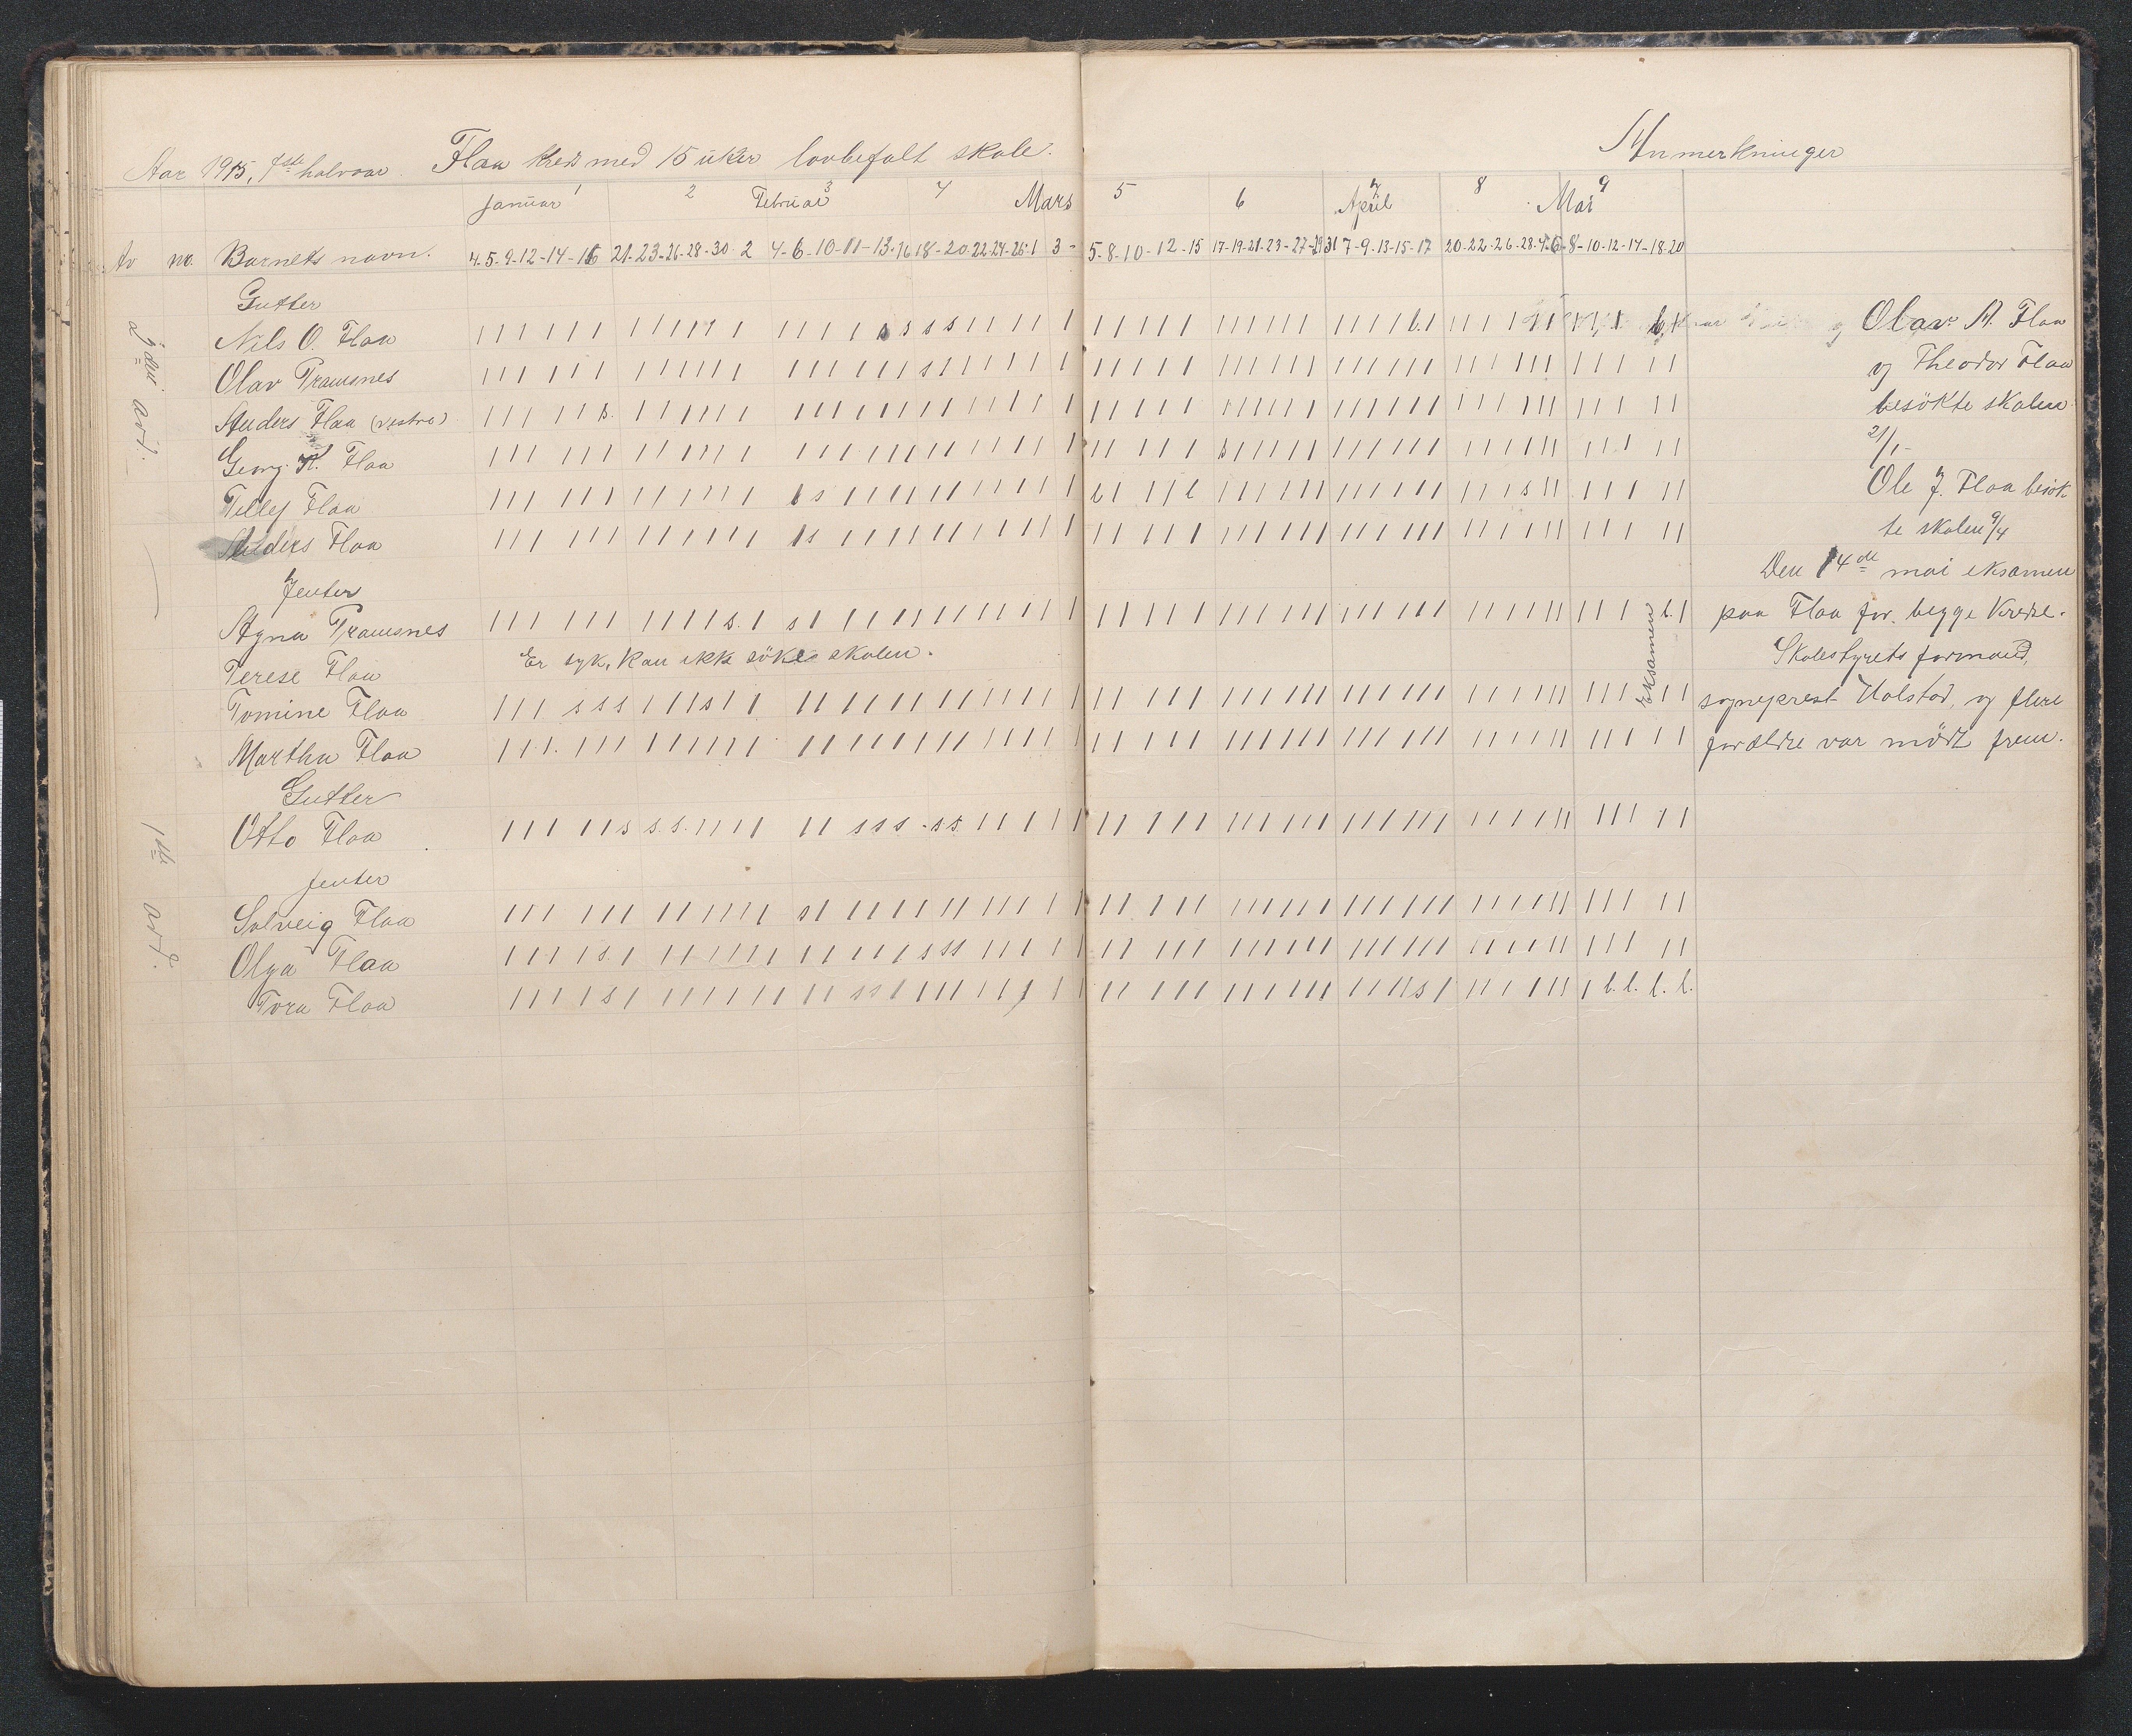 Aar 1915, 1ste halvaar. Flaa kreds med 15 uker lovbefalt skole.
Anmerkninger
Januar 1 2 Februar 3 4 Mars 5 6 7 April 8 Mai 9
Av no. Barnets navn. 4-5-9-12-14-16 21-23-26-28-30-2 4-6-10-11-13-16 18-20-22-24-26-1 3- 5-8-10-12-15 17-19-21-23-27-29 31 7-9-13-15-17 20-22-26-28-4-6 8-10-12-14-18-20
Gutter
2den avd.
Nils O. Flaa
Olav Tramsnes
Anders Flaa (vestre)
Georg K. Flaa
Telly Flaa
Anders Flaa
Jenter
Agna Tramsnes
Terese Flaa Er syk, kan ikke söke skolen.
Tomine Flaa
Martha Flaa
Gutter
1ste avd.
Otto Flaa
Jenter
Solveig Flaa
Olga Flaa
Tora Flaa
Eksamen
Olav A. Flaa
og Theodor Flaa
besökte skolen
21/1-
Ole J. Flaa besök
te skolen 9/4
Den 14de mai eksamen
paa Flaa for begge kredse.
Skolestyrets formand,
sogneprest Holstad, og flere
forældre var mödt frem.